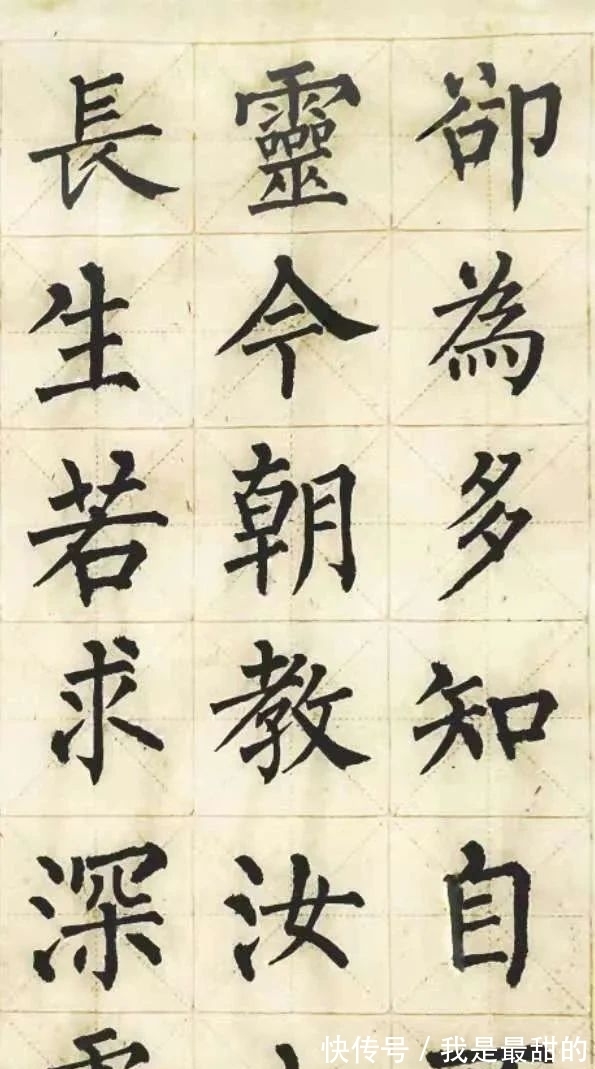 卻為多知自
靈今朝教汝
長生若求深
快传号/我是最甜的